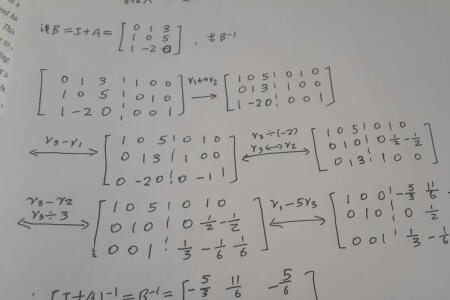 设B=I+A= [0 1 3
1 0 5
1 -2 0], 求B⁻¹
[0 1 3 ¦ 1 0 0
1 0 5 ¦ 0 1 0
1 -2 0 ¦ 0 0 1] r₁↔r₂ → [1 0 5 ¦ 0 1 0
0 1 3 ¦ 1 0 0
1 -2 0 ¦ 0 0 1]
r₃-r₁ ↔ [1 0 5 ¦ 0 1 0
0 1 3 ¦ 1 0 0
0 -2 0 ¦ 0 -1 1] r₃÷(-2) r₃↔r₂ ↔ [1 0 5 ¦ 0 1 0
0 1 0 ¦ 0 1/2 -1/2
0 1 3 ¦ 1 0 0]
r₃-r₂ r₃÷3 ↔ [1 0 5 ¦ 0 1 0
0 1 0 ¦ 0 1/2 -1/2
0 0 1 ¦ 1/3 -1/6 1/6] r₁-5r₃ ↔ [1 0 0 ¦ -5/3 11/6
0 1 0 ¦ 0 1/2
0 0 1 ¦ 1/3 -1/6
∴ [I+A]⁻¹=B⁻¹= [-5/3 11/6 -5/6]